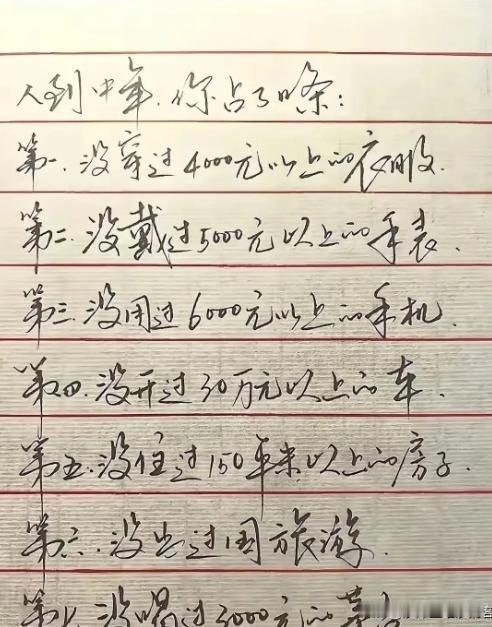 人到中年,你占了几条:
第一.没穿过4000元以上的衣服.
第二.没戴过5000元以上的手表.
第三.没用过6000元以上的手机.
第四.没开过30万元以上的车.
第五.没住过150平米以上的房子.
第六.没出过国旅游.
没喝过3000元的茶